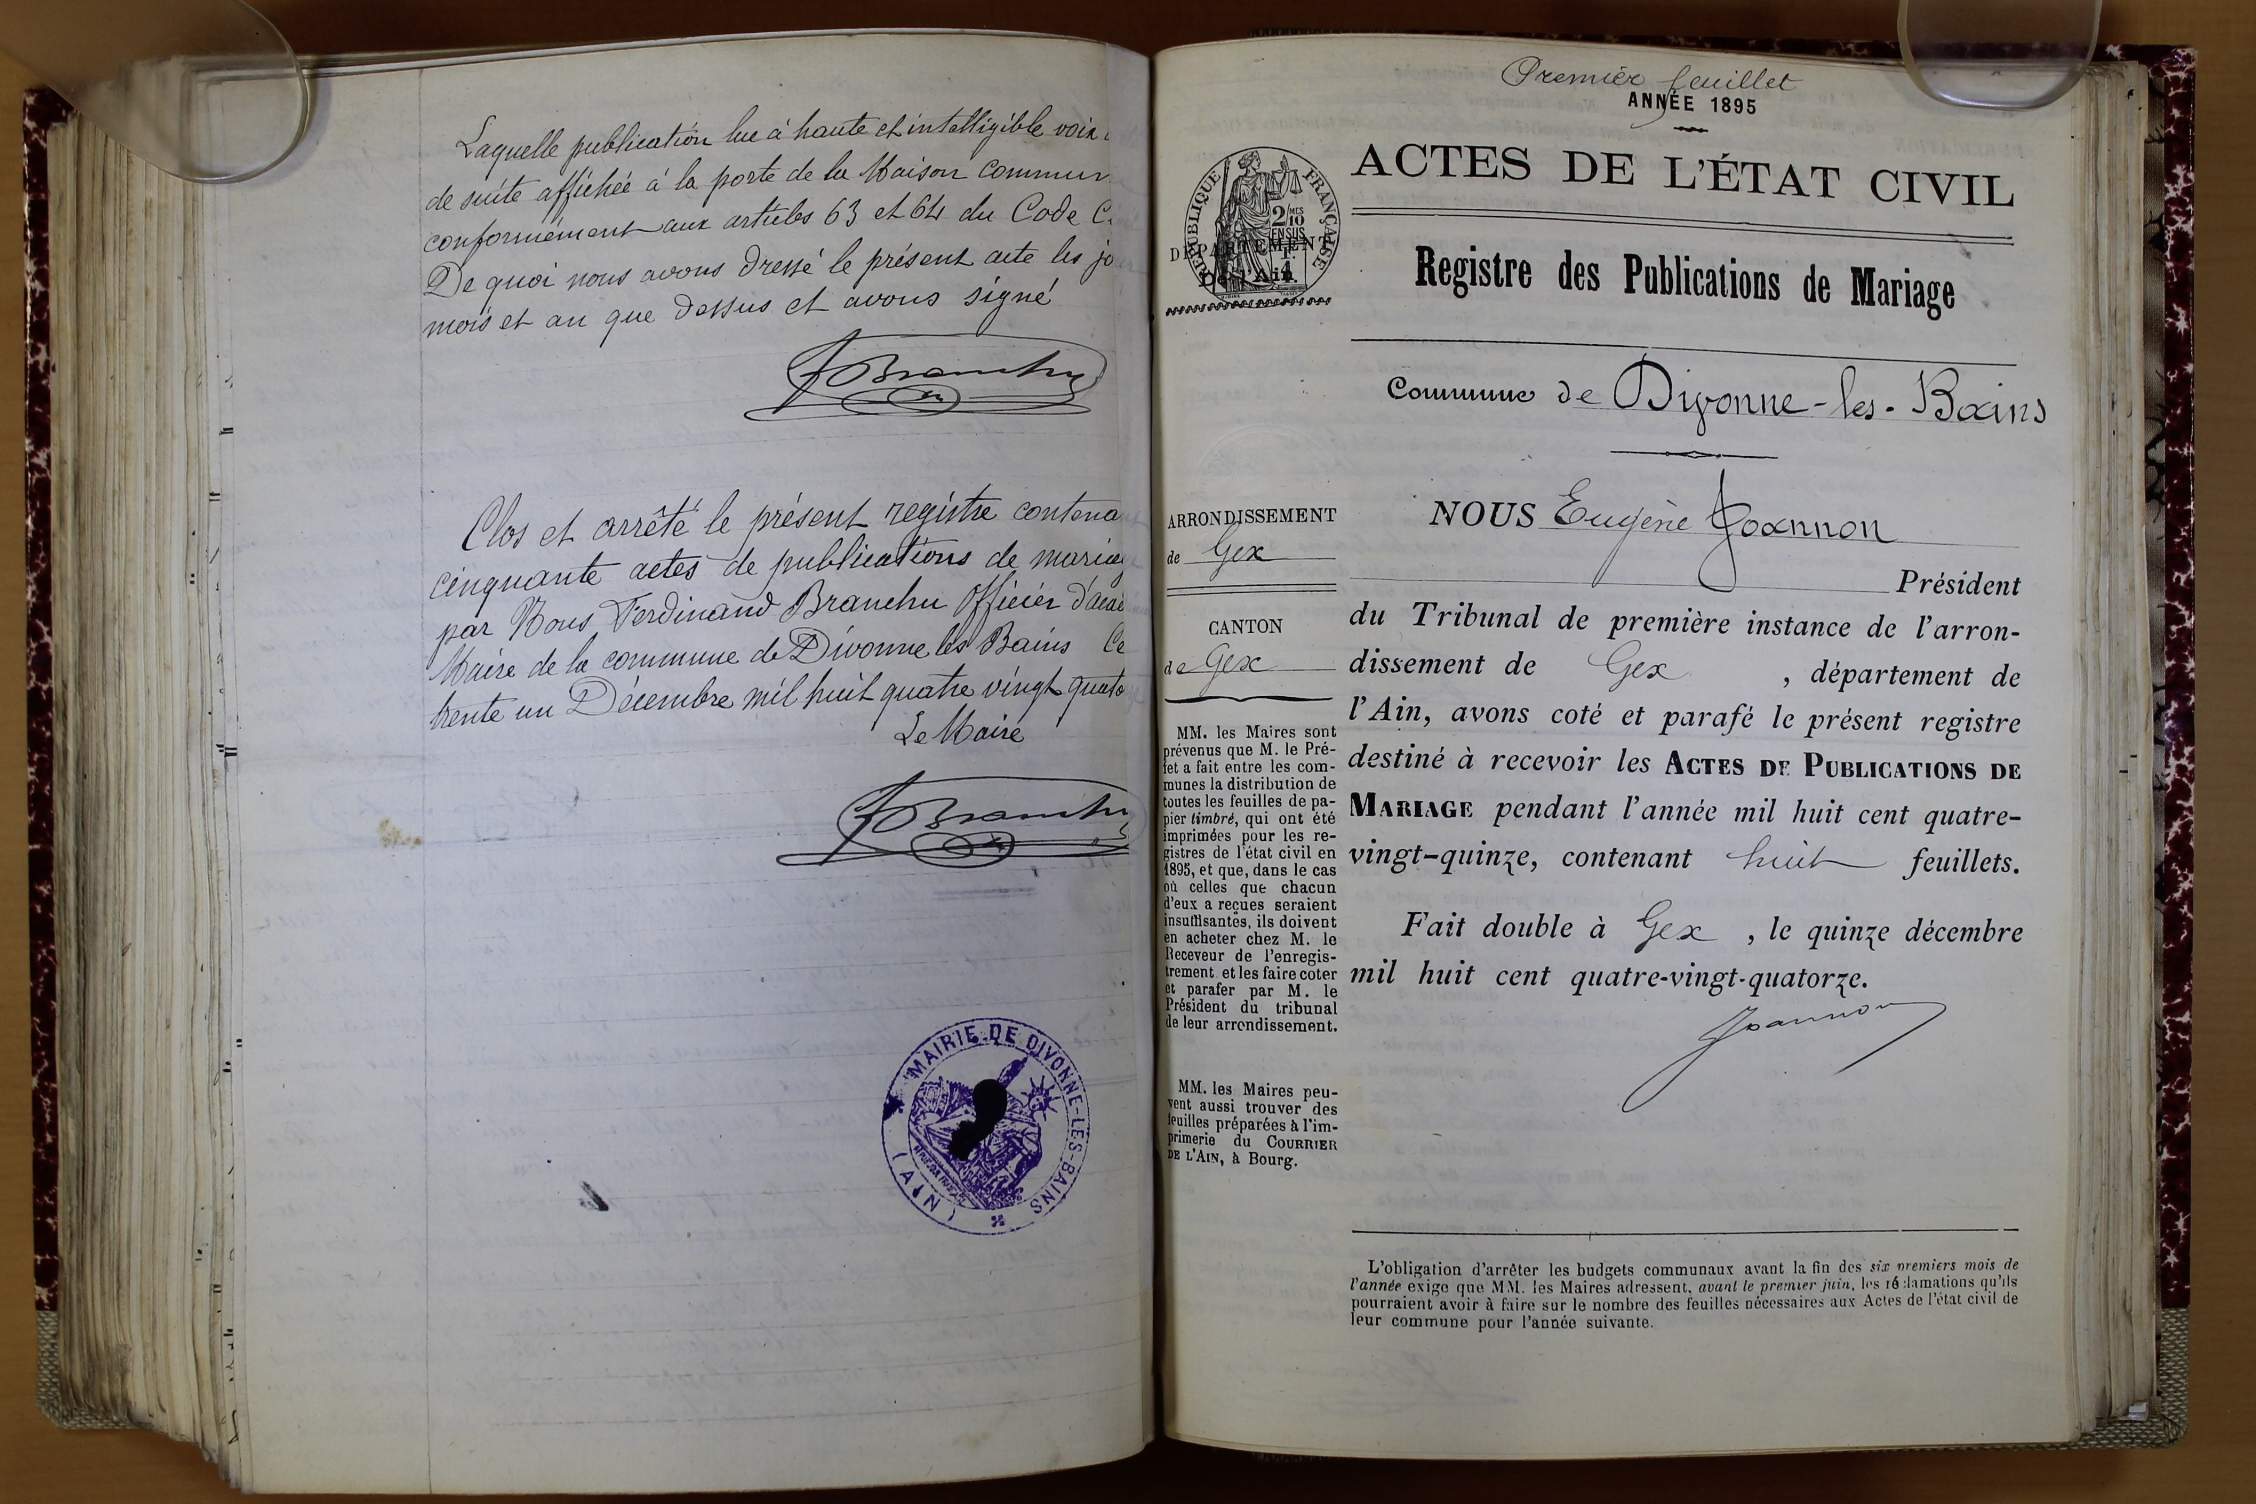 Laquelle publication lue à haute et intelligible voix
de suite affichée à la porte de la Maison commun
conformément aux articles 63 et 64 du Code C
De quoi nous avons dressé le présent acte les jo
mois et an que dessus et avons signé
FBranchu
Clos et arrêté le présent registre contena
cinquante actes de publications de mariag
par Nous Ferdinand Branchu Officier d'acad
Maire de la commune de Divonne les Bains Ce
trente un Décembre mil huit quatre vingt quato
Le Maire
FBranchu
MAIRIE DE DIVONNE-LES-BAINS
(AIN)
Premier feuillet
ANNÉE 1895
ACTES DE L'ÉTAT CIVIL
RÉPUBLIQUE FRANÇAISE
2/10 MES
EN SUS
DÉPARTEMENT
De l'Ain
Registre des Publications de Mariage
Commune de Divonne-les-Bains
ARRONDISSEMENT
de Gex
CANTON
de Gex
MM. les Maires sont
prévenus que M. le Pré-
fet a fait entre les com-
munes la distribution de
toutes les feuilles de pa-
pier timbré, qui ont été
imprimées pour les re-
gistres de l'état civil en
1895, et que, dans le cas
où celles que chacun
d'eux a reçues seraient
insuffisantes, ils doivent
en acheter chez M. le
Receveur de l'enregis-
trement et les faire coter
et parafer par M. le
Président du tribunal
de leur arrondissement.
MM. les Maires peu-
vent aussi trouver des
feuilles préparées à l'im-
primerie du COURRIER
DE L'AIN, à Bourg.
NOUS Eugène Joannon
Président
du Tribunal de première instance de l'arron-
dissement de Gex, département de
l'Ain, avons coté et parafé le présent registre
destiné à recevoir les ACTES DE PUBLICATIONS DE
MARIAGE pendant l'année mil huit cent quatre-
vingt-quinze, contenant huit feuillets.
Fait double à Gex, le quinze décembre
mil huit cent quatre-vingt-quatorze.
Joannon
L'obligation d'arrêter les budgets communaux avant la fin des six premiers mois de
l'année exige que MM. les Maires adressent, avant le premier juin, les réclamations qu'ils
pourraient avoir à faire sur le nombre des feuilles nécessaires aux Actes de l'état civil de
leur commune pour l'année suivante.